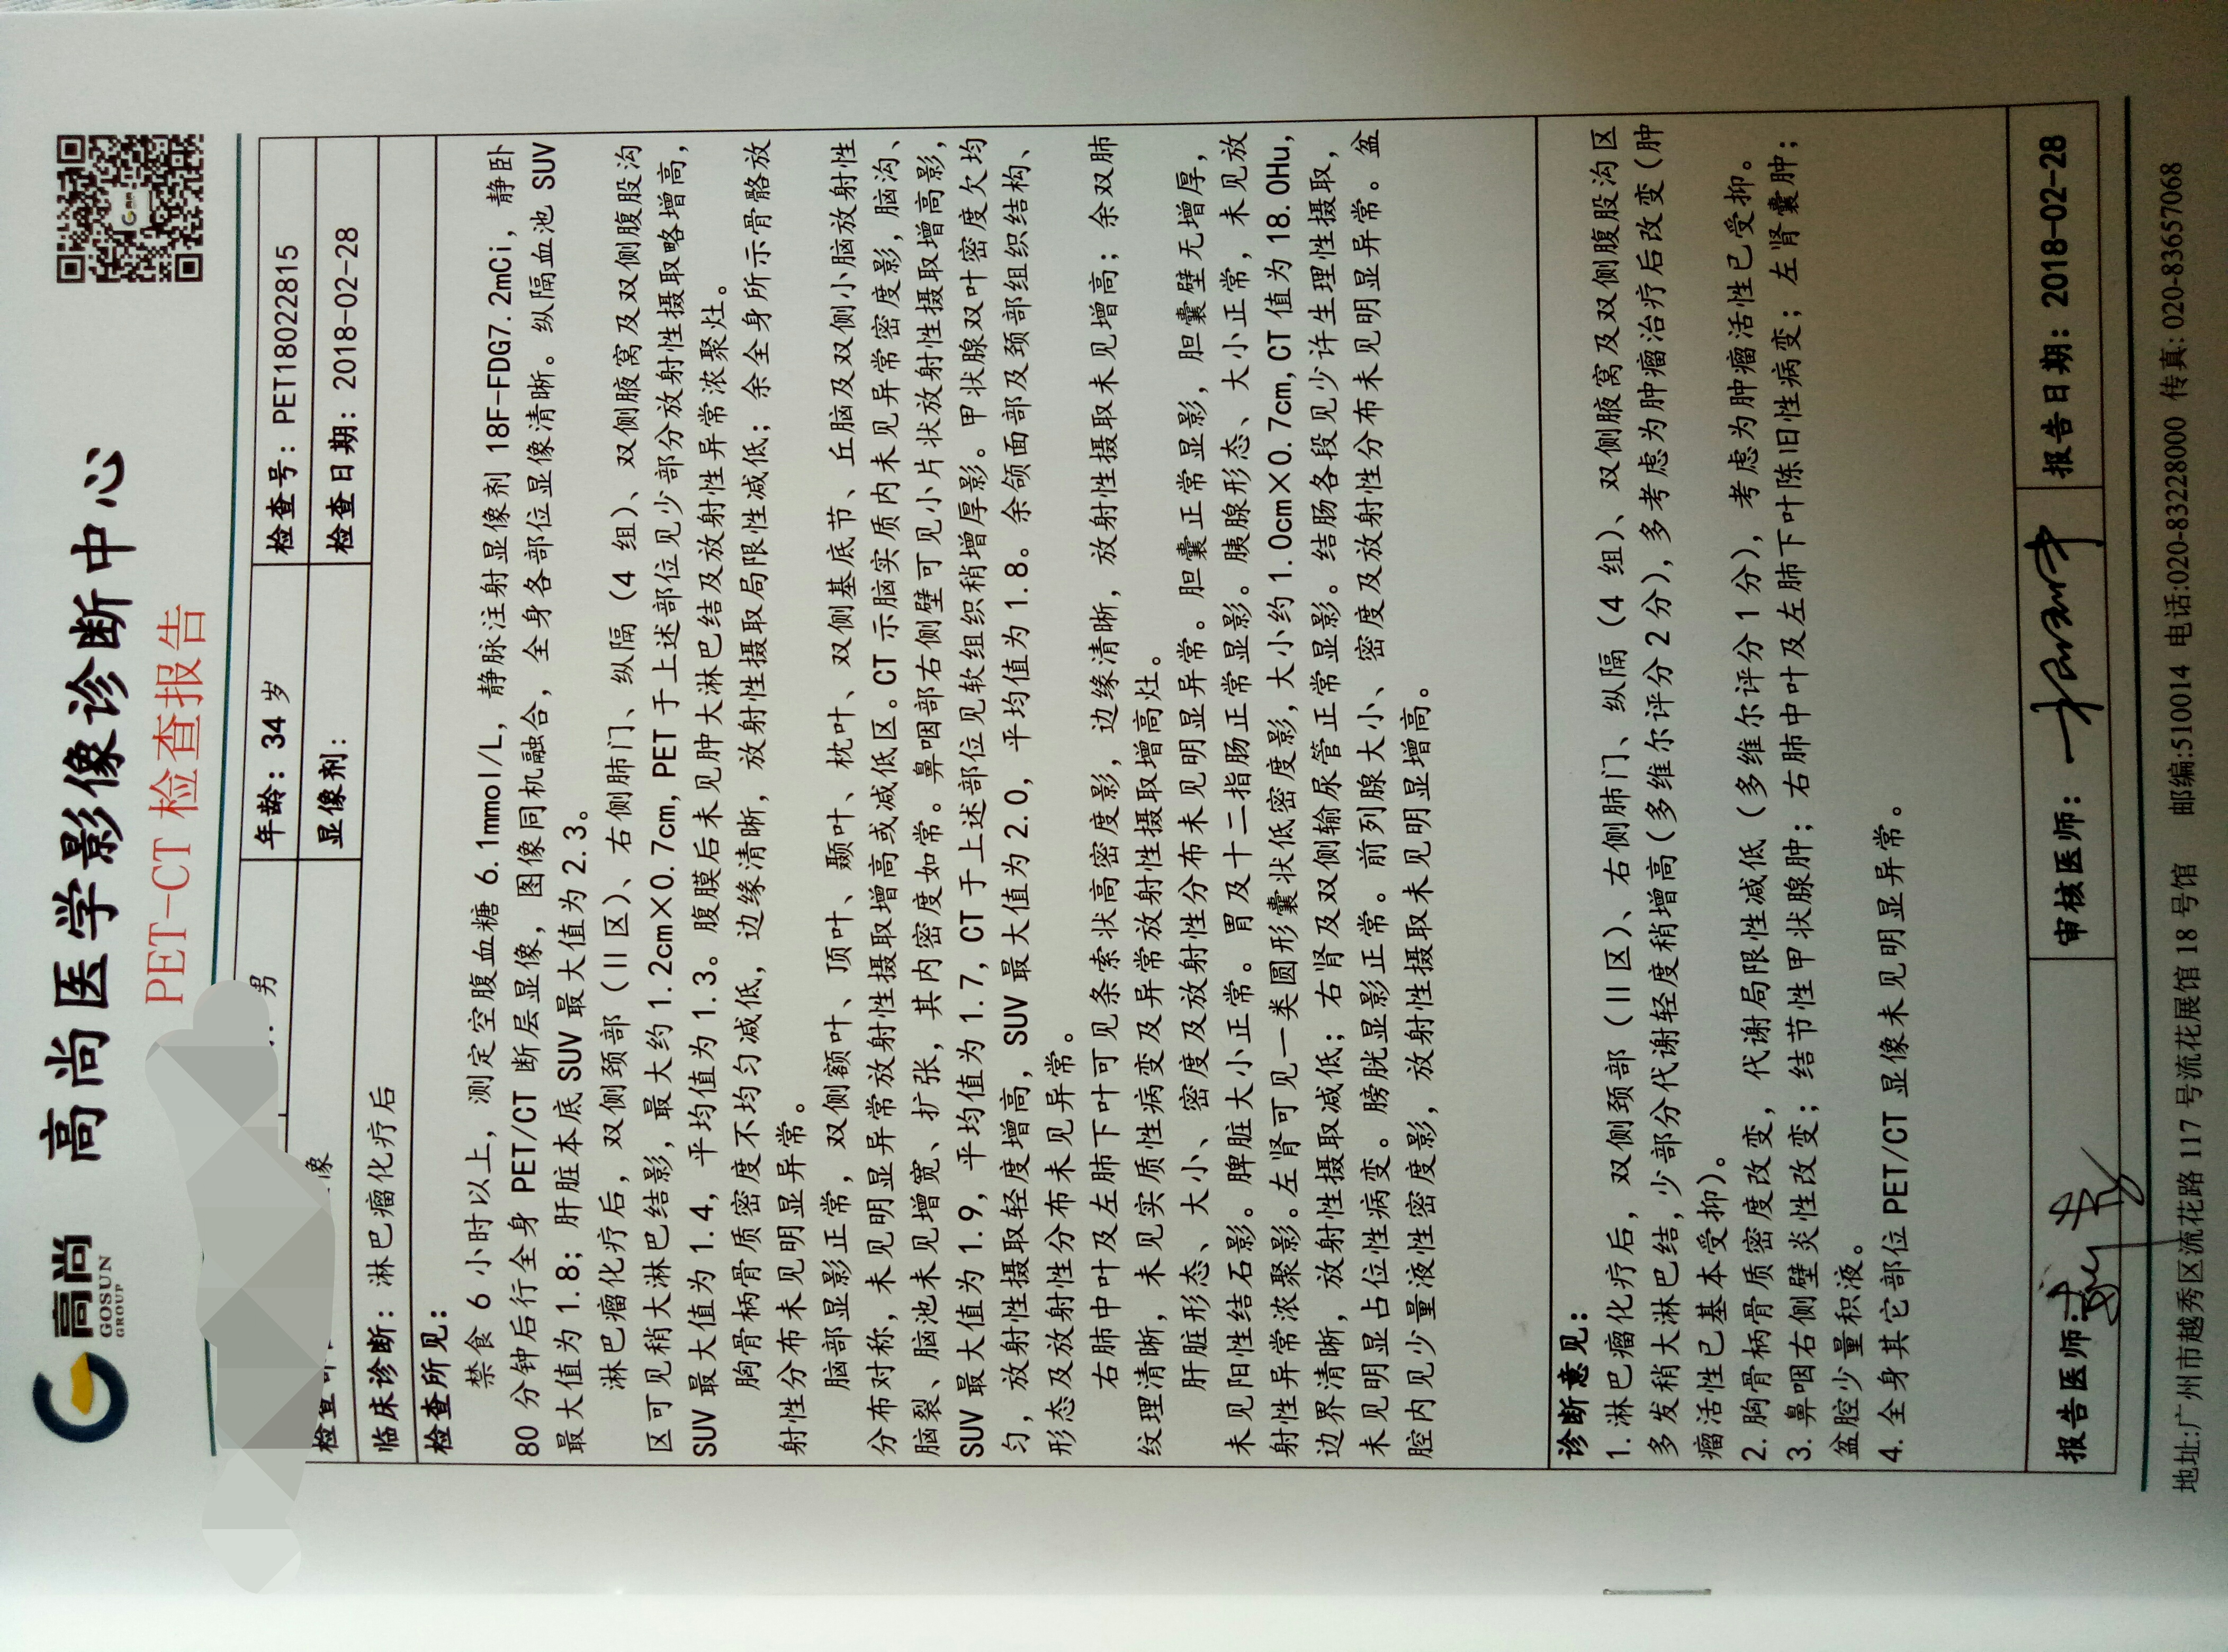 高尚
GOSUN
GROUP
高尚医学影像诊断中心
PET-CT 检查报告
男 年龄：34 岁 检查号：PET18022815
像 显像剂： 检查日期：2018-02-28
临床诊断：淋巴瘤化疗后
检查所见：
禁食 6 小时以上，测定空腹血糖 6.1mmol/L，静脉注射显像剂 18F-FDG7.2mCi，静卧
80 分钟后行全身 PET/CT 断层显像，图像同机融合，全身各部位显像清晰。纵隔血池 SUV
最大值为 1.8；肝脏本底 SUV 最大值为 2.3。
淋巴瘤化疗后，双侧颈部（II 区）、右侧肺门、纵隔（4 组）、双侧腋窝及双侧腹股沟
区可见稍大淋巴结影，最大约 1.2cm×0.7cm，PET 于上述部位见少部分放射性摄取略增高，
SUV 最大值为 1.4，平均值为 1.3。腹膜后未见肿大淋巴结及放射性异常浓聚灶。
胸骨柄骨质密度不均匀减低，边缘清晰，放射性摄取局限性减低；余全身所示骨骼放
射性分布未见明显异常。
脑部显影正常，双侧额叶、顶叶、颞叶、枕叶、双侧基底节、丘脑及双侧小脑放射性
分布对称，未见明显异常放射性摄取增高或减低区。CT 示脑实质内未见异常密度影，脑沟、
脑裂、脑池未见增宽、扩张，其内密度如常。鼻咽部右侧壁可见小片状放射性摄取增高影，
SUV 最大值为 1.9，平均值为 1.7，CT 于上述部位见软组织稍增厚影。甲状腺双叶密度欠均
匀，放射性摄取轻度增高，SUV 最大值为 2.0，平均值为 1.8。余颌面部及颈部组织结构、
形态及放射性分布未见异常。
右肺中叶及左肺下叶可见条索状高密度影，边缘清晰，放射性摄取未见增高；余双肺
纹理清晰，未见实质性病变及异常放射性摄取增高灶。
肝脏形态、大小、密度及放射性分布未见明显异常。胆囊正常显影，胆囊壁无增厚，
未见阳性结石影。脾脏大小正常。胃及十二指肠正常显影。胰腺形态、大小正常，未见放
射性异常浓聚影。左肾可见一类圆形囊状低密度影，大小约 1.0cm×0.7cm，CT 值为 18.0Hu，
边界清晰，放射性摄取减低；右肾及双侧输尿管正常显影。结肠各段见少许生理性摄取，
未见明显占位性病变。膀胱显影正常。前列腺大小、密度及放射性分布未见明显异常。盆
腔内见少量液性密度影，放射性摄取未见明显增高。
诊断意见：
1.淋巴瘤化疗后，双侧颈部（II 区）、右侧肺门、纵隔（4 组）、双侧腋窝及双侧腹股沟区
多发稍大淋巴结，少部分代谢轻度稍增高（多维尔评分 2 分），多考虑为肿瘤治疗后改变（肿
瘤活性已基本受抑）。
2.胸骨柄骨质密度改变，代谢局限性减低（多维尔评分 1 分），考虑为肿瘤活性已受抑。
3.鼻咽右侧壁炎性改变；结节性甲状腺肿；右肺中叶及左肺下叶陈旧性病变；左肾囊肿；
盆腔少量积液。
4.全身其它部位 PET/CT 显像未见明显异常。
报告医师： 审核医师： 报告日期：2018-02-28
地址:广州市越秀区流花路 117 号流花展馆 18 号馆 邮编:510014 电话:020-83228000 传真: 020-83657068